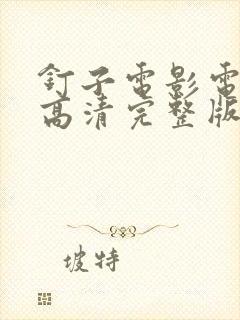 釘子電影電
高清完整版
坡特